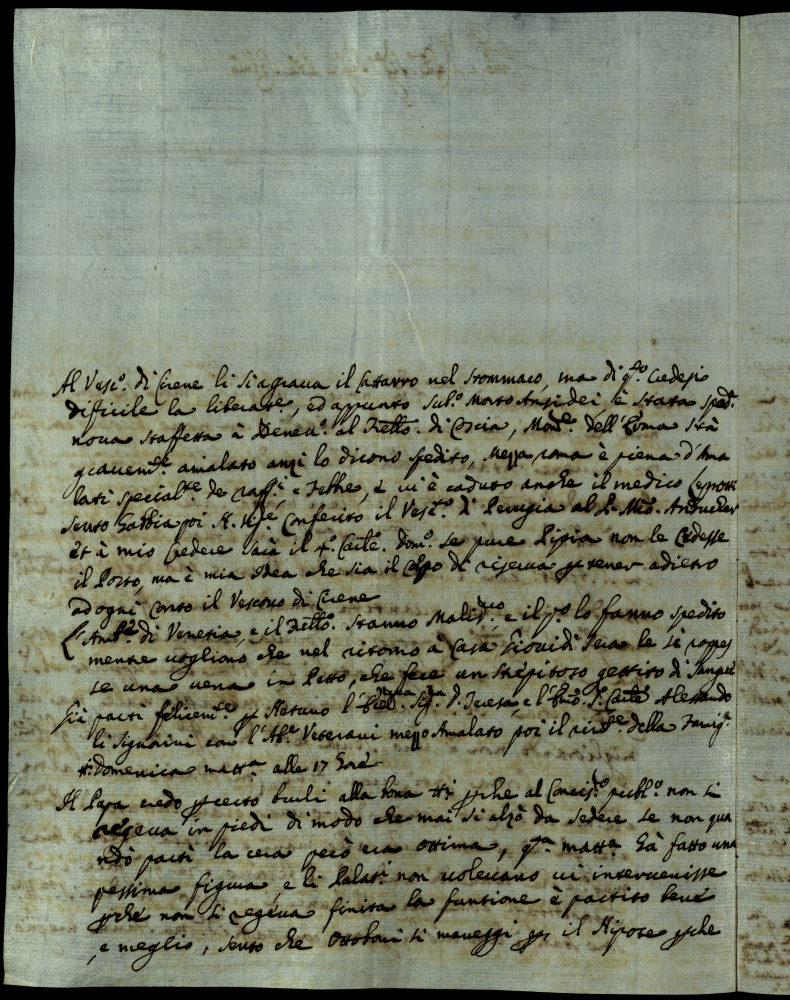 Al Vesc.º di Cirene li si agrava il Cattarro nel stommaco, ma di q.sto Credesi
dificile la liberat.e, ed appunto sub.o Morto Ansidei le stata sped.
nova staffetta à Benev.o al Fratello di Coscia, Mon.r dell'Roma sta
gravem.te amalato anzi lo dicono spedito, Mezza roma è piena d'Ama
lati special.te de raff.i e Febbre, e vi è caduto anche il medico Leprotti
sento habbia poi N. Sig.re Conferito il Vesc.to di Perugia al P. Mro.
et à mio Credere sarà il Card.le Dom.o se pure Pipia non le Cedesse
il Posto, ma è mia Idea che sia il Capo di riserva p tener adietro
ad ogni conto il Vescovo di Cirene
L'Amb.r di Venetia, e il Fratello stanno Mali, e il p.o lo fanno spedito
mentre vogliono che nel ritorno à Casa Giovidi sera le si rappes
se una vena in Petto, che fece un strepitoso gettito di sangue
Già partì felicem.te p Netuno l' Sig.ra D. Teresa, e l' Card.e Alessandro
li Signorini con l'Ab.e Veterani mezzo Amalato poi il rim.te della Famig.a
Domenica matt.a alle 17 hore
Il Papa credo p certo burli alla bona perche al Concist.o publ.o non si
regeva in piedi di modo che mai si alzò da sedere se non qua
ndò partì la cera però era ottima, q.ta matt.a hà fatto una
pessima figura, e li Palat.i non volevano vi intervenisse
perche non si regeva finita la funtione è partito bene
, e meglio, sento che Ottoboni si maneggi p il Nipote perche